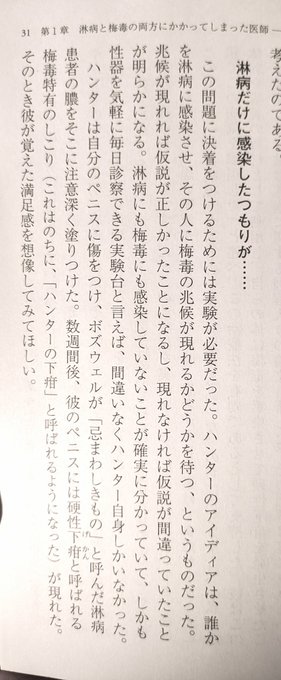 31　第1章　淋病と梅毒の両方にかかってしまった医師
考えたのである。
淋病だけに感染したつもりが……
この問題に決着をつけるためには実験が必要だった。ハンターのアイディアは、誰か
を淋病に感染させ、その人に梅毒の兆候が現れるかどうかを待つ、というものだった。
兆候が現れれば仮説が正しかったことになるし、現れなければ仮説が間違っていたこと
が明らかになる。淋病にも梅毒にも感染していないことが確実に分かっていて、しかも
性器を気軽に毎日診察できる実験台と言えば、間違いなくハンター自身しかいなかった。
ハンターは自分のペニスに傷をつけ、ボズウェルが「忌まわしきもの」と呼んだ淋病
患者の膿をそこに注意深く塗りつけた。数週間後、彼のペニスには硬性下疳と呼ばれる
梅毒特有のしこり（これはのちに、「ハンターの下疳」と呼ばれるようになった）が現れた。
そのとき彼が覚えた満足感を想像してみてほしい。